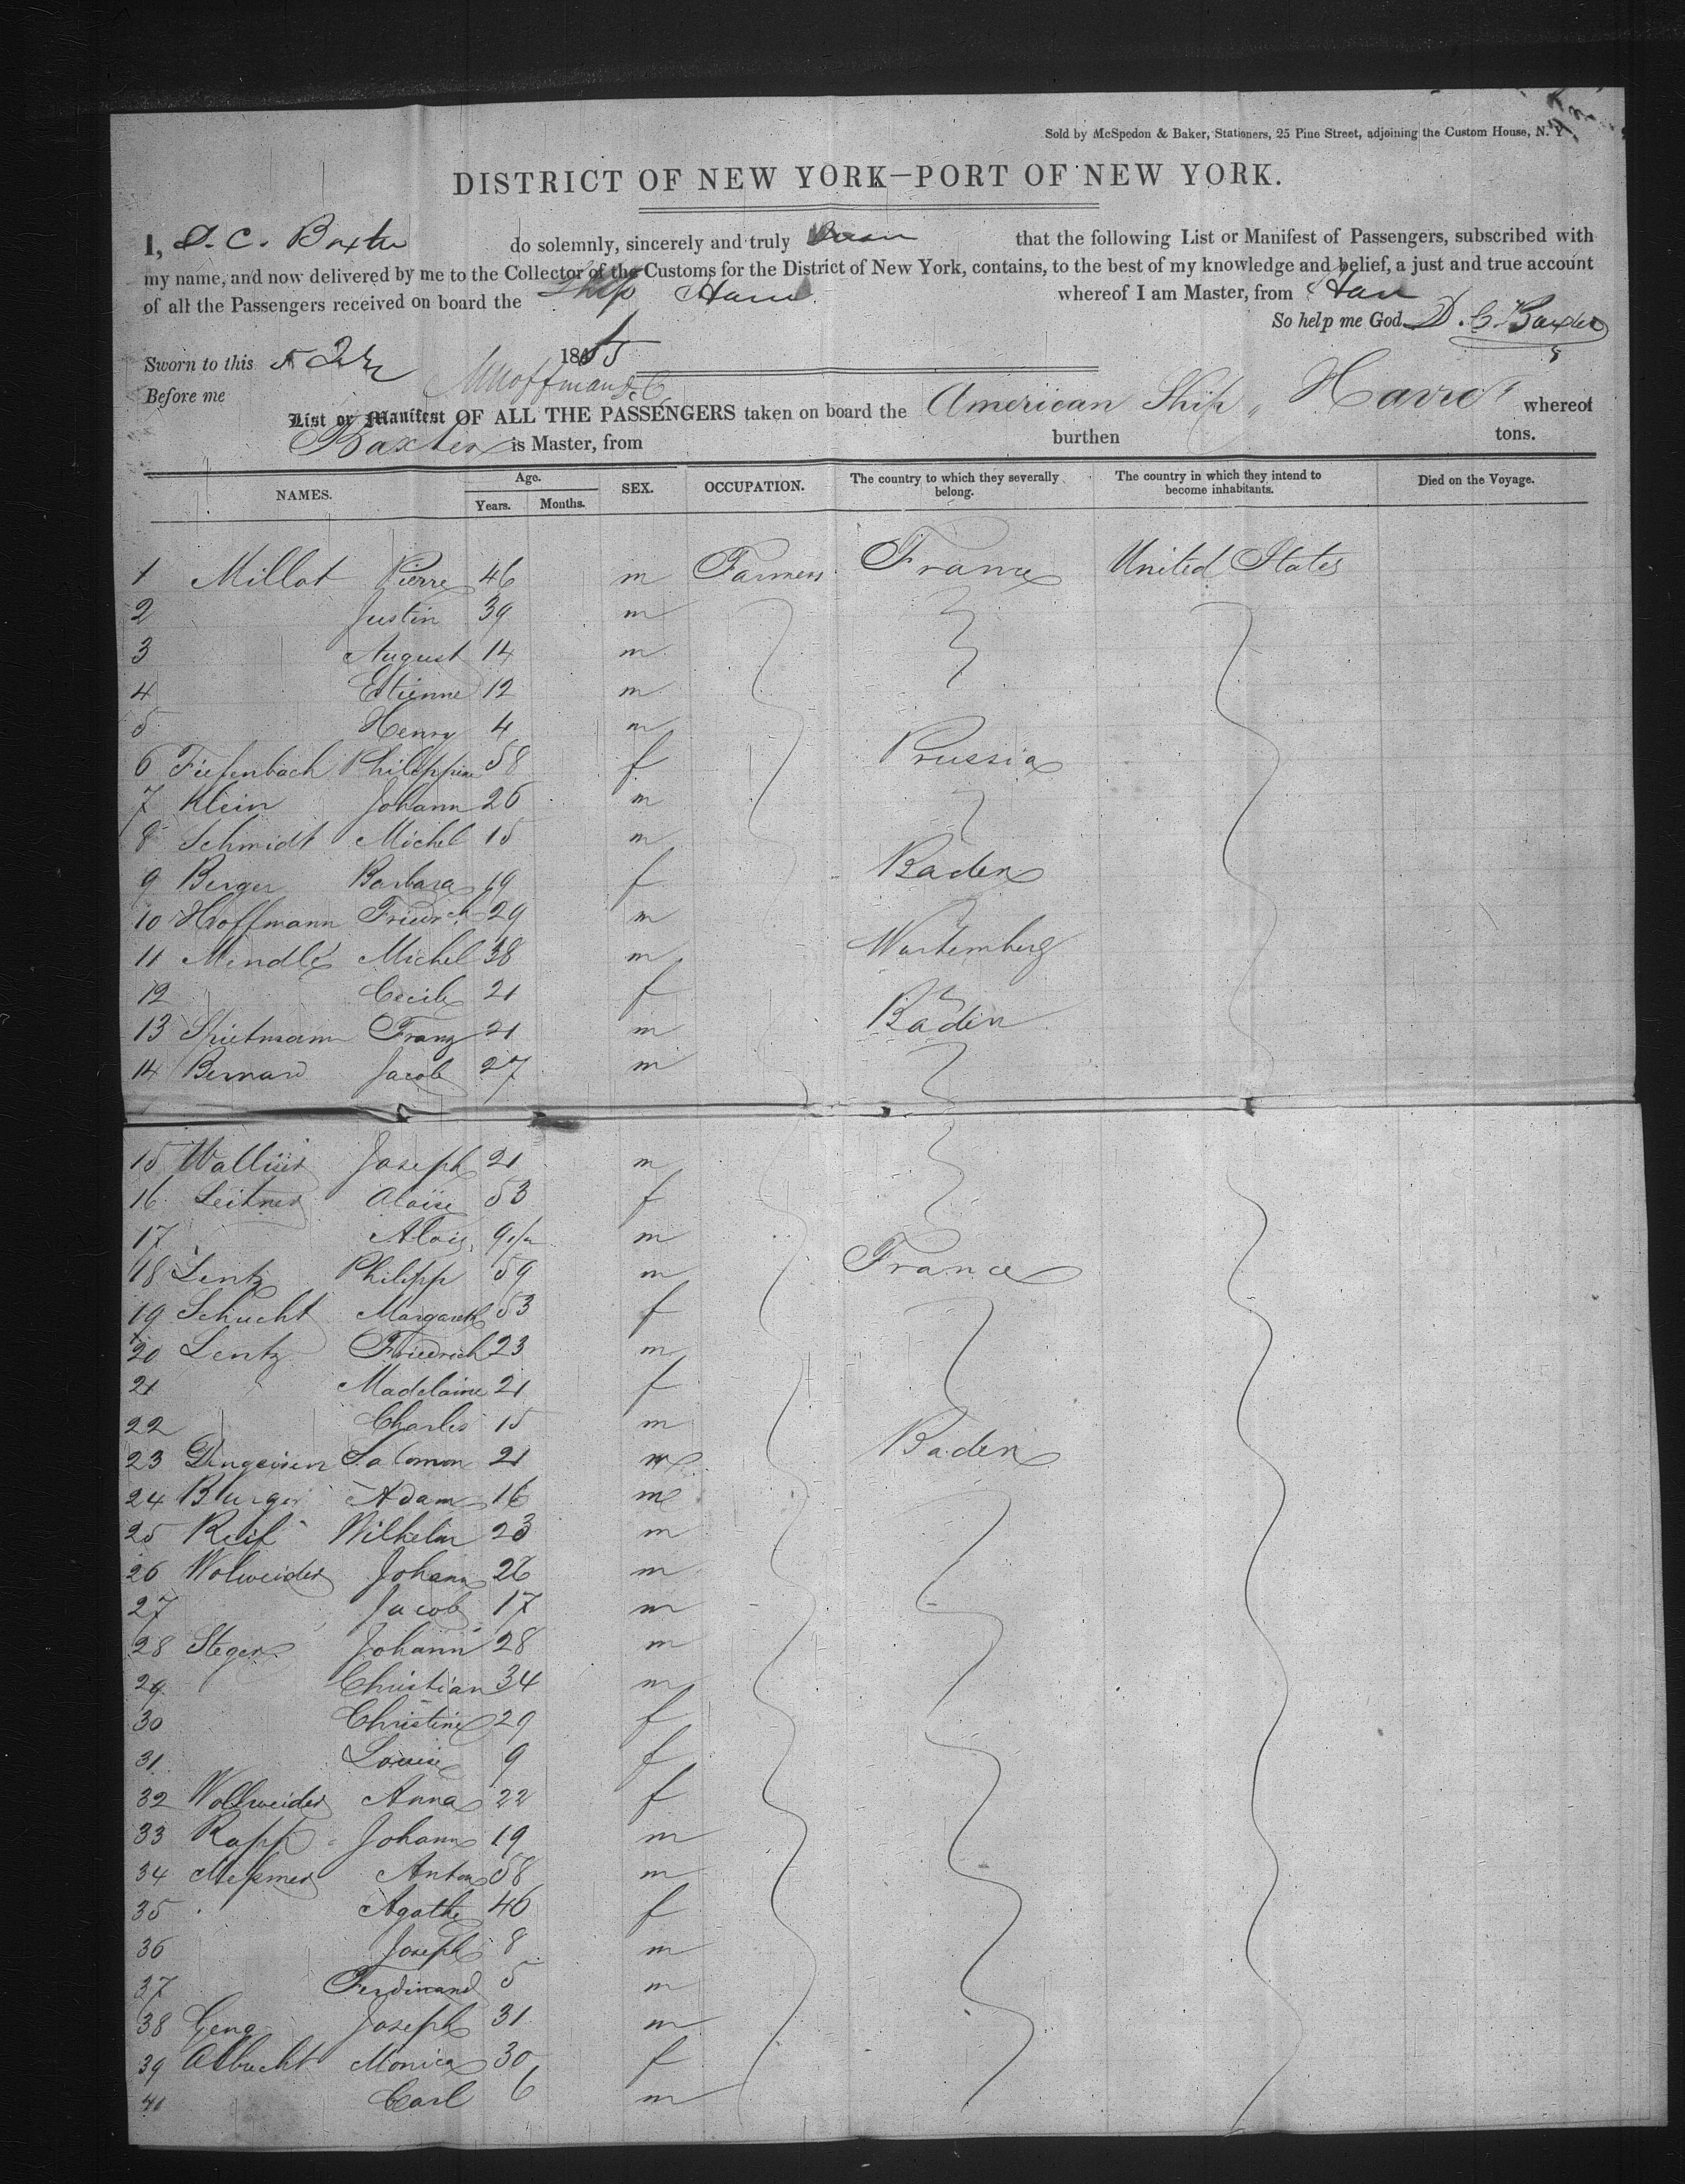 Sold by McSpedon & Baker, Stationers, 25 Pine Street, adjoining the Custom House, N. Y.
DISTRICT OF NEW YORK—PORT OF NEW YORK.
I, D. C. Baxter do solemnly, sincerely and truly Swear that the following List or Manifest of Passengers, subscribed with
my name, and now delivered by me to the Collector of the Customs for the District of New York, contains, to the best of my knowledge and belief, a just and true account
of all the Passengers received on board the Ship Havre whereof I am Master, from Havre
So help me God. D. C. Baxter
Sworn to this 185
Before me
List or Manifest OF ALL THE PASSENGERS taken on board the American Ship "Havre" whereof
Baxter is Master, from burthen tons.
NAMES. Age. Years. Months. SEX. OCCUPATION. The country to which they severally belong. The country in which they intend to become inhabitants. Died on the Voyage.
1 Millot Pierre 46 m Farmers France United States
2 Justin 39 m
3 August 14 m
4 Etienne 12 m
5 Henry 4 m
6 Fiefenbach Philippine 58 f Prussia
7 Klein Johann 26 m
8 Schmidt Michel 15 m
9 Berger Barbara 19 f Baden
10 Hoffmann Friedr. 29 m
11 Mindle Michel 38 m Wurtemberg
12 Cecile 21 f
13 Franz 21 m Baden
14 Bernard Jacob 27 m
15 Joseph 21 m
16 Leitner Aloise 53 f
17 Alois m
18 Lentz Philipp 59 m France
19 Schucht Margareth 53 f
20 Lentz Friedrich 23 m
21 Madelaine 21 f
22 Charles 15 m
23 Salomon 21 m Baden
24 Burger Adam 16 m
25 Reif Wilhelm 23 m
26 Wolweider Johann 26 m
27 Jacob 17 m
28 Steger Johann 28 m
29 Christian 34 m
30 Christine 29 f
31 Louise 9 f
32 Wollweider Anna 22 f
33 Rapp Johann 19 m
34 Messmer Anton 58 m
35 Agathe 46 f
36 Joseph 8 m
37 Ferdinand 5 m
38 Geng Joseph 31 m
39 Albrecht Monica 30 f
41 Carl 6 m